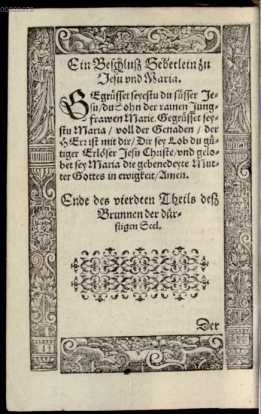 Ein Beschluß Gebetlein zu
Jesu vnd Maria.
GEgrüsset seyestu du süsser Je-
su/du Sohn der rainen Jung-
frawen Marie. Gegrüsset sey-
stu Maria / voll der Genaden / der
HErr ist mit dir/ Dir sey Lob du gü-
tiger Erlöser Jesu Christe/vnd gelo-
bet sey Maria die gebenedeyte Mut-
ter Gottes in ewigkeit/Amen.
Ende des vierdten Theils deß
Brunnen der dür-
stigen Seel.
Der